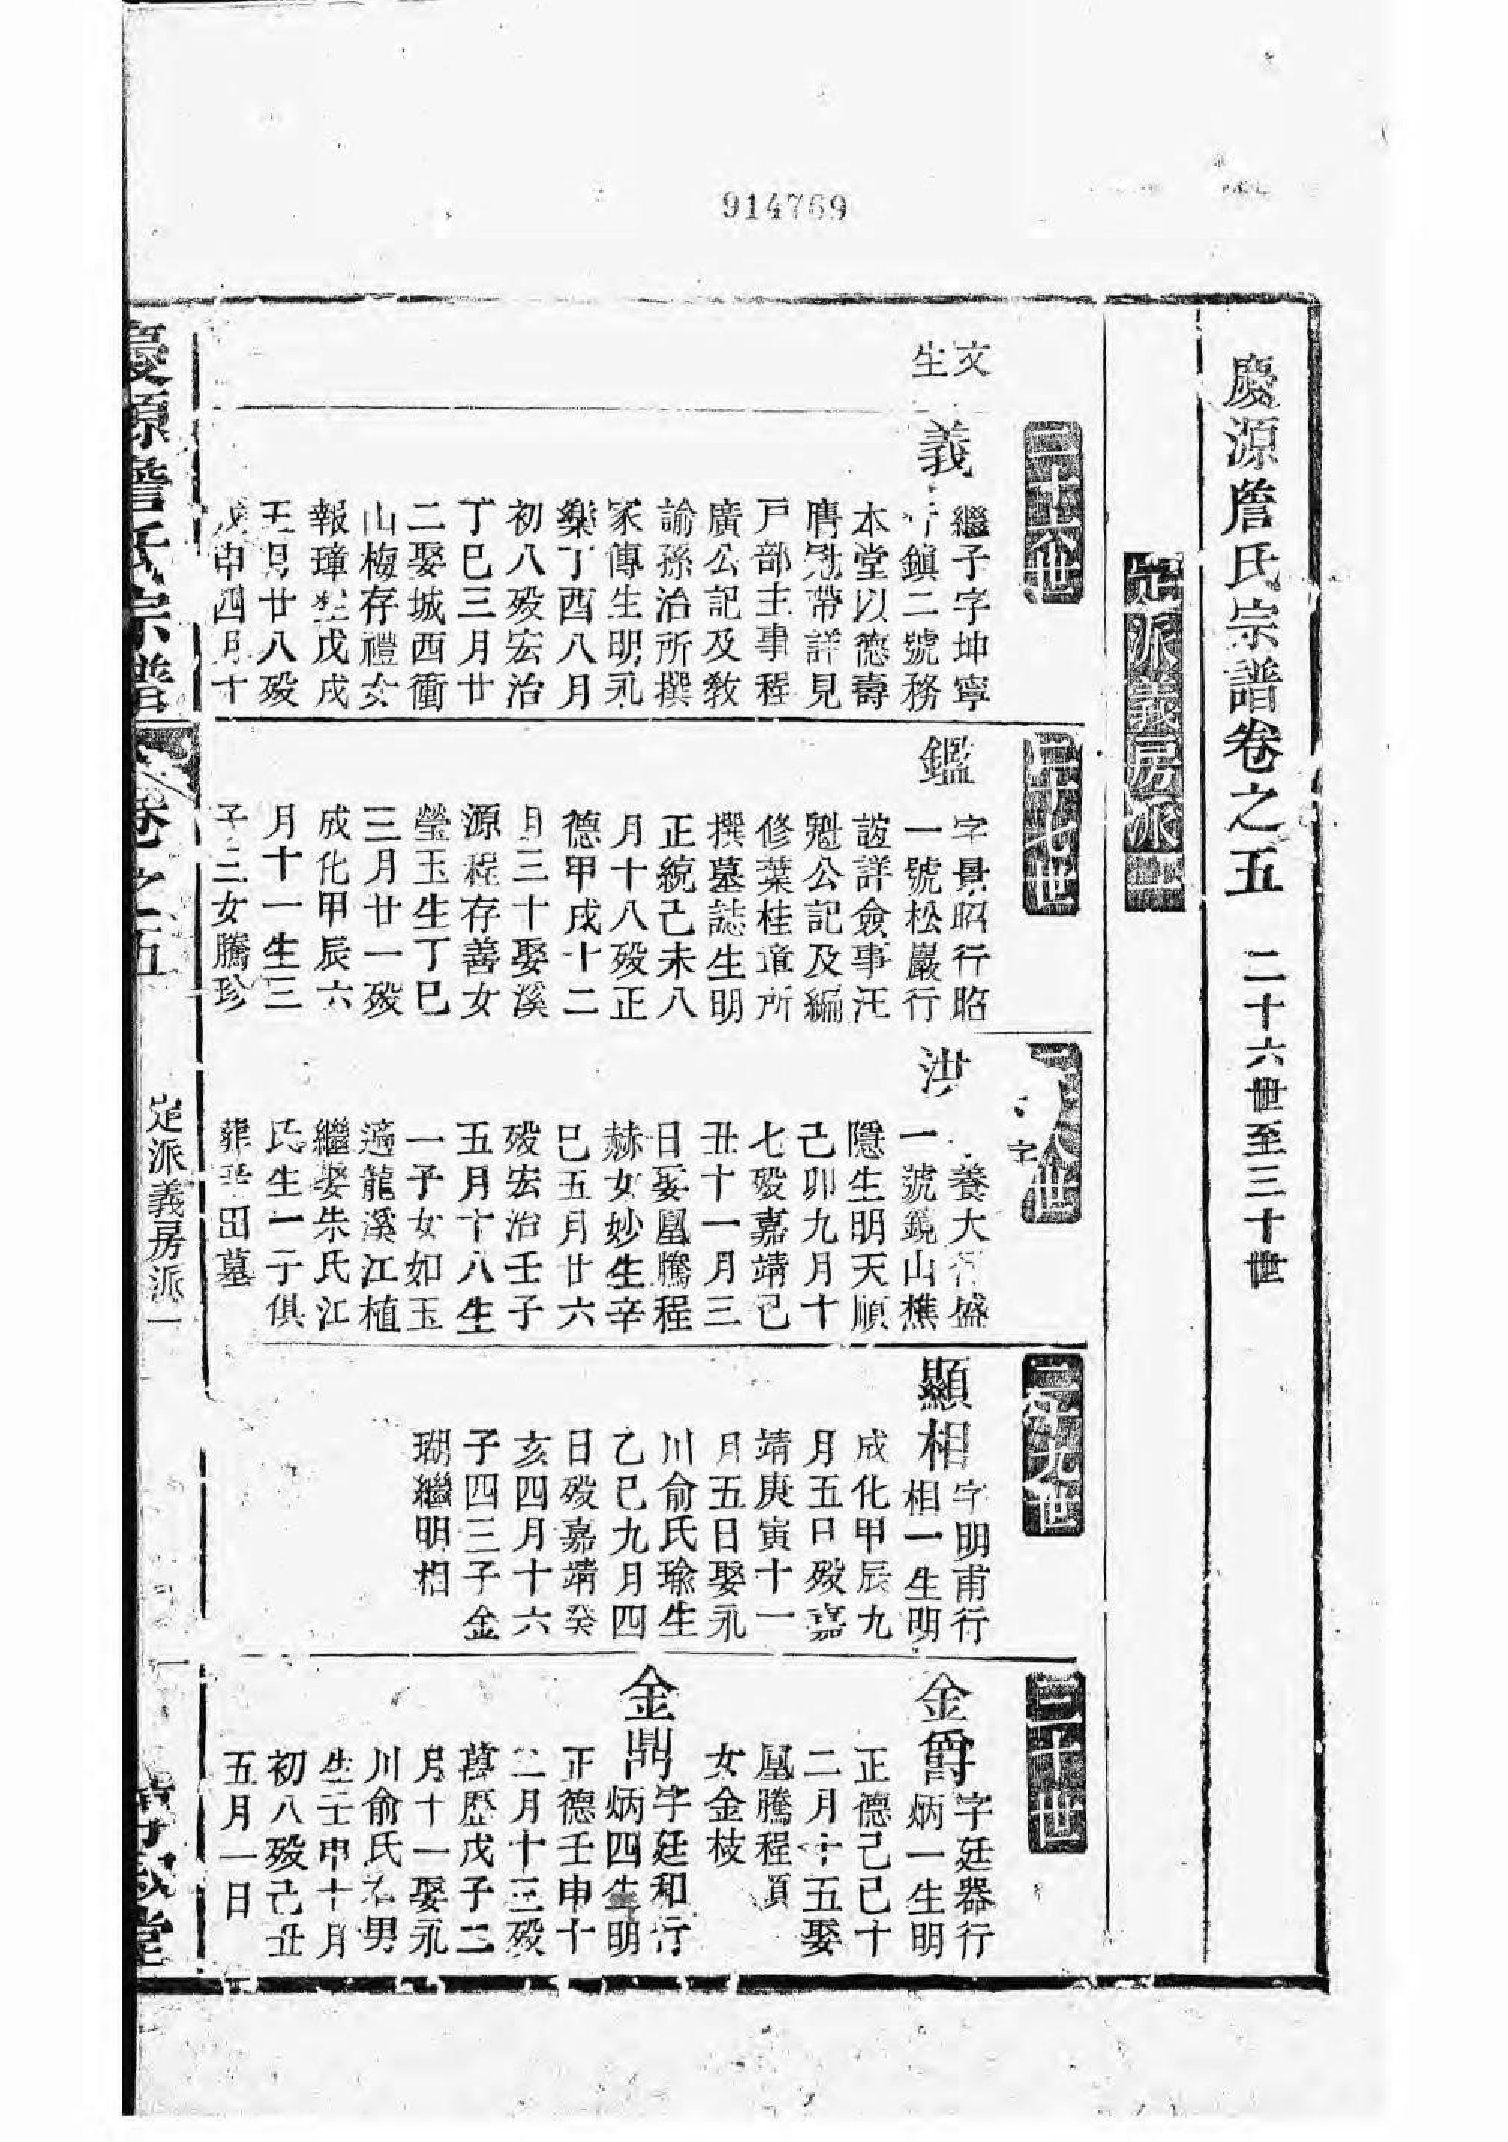 914769
慶源詹氏宗譜卷之五 二十六世至三十世
定派義房派
二十六世
文
生
義
繼子字坤寧
行鎮二號務
本堂以德壽
膺冠帶詳見
戸部主事程
廣公記及教
諭孫治所撰
家傳生明永
樂丁酉八月
初八殁宏治
丁巳三月廿
二娶城西衝
山梅存禮女
報璋生戊戌
五月廿八殁
戊申四月十
二十七世
鑑
字景昭行昭
一號松巖行
誼詳僉事汪
魁公記及編
修葉桂章所
撰墓誌生明
正統己未八
月十八殁正
德甲戌十二
月三十娶溪
源程存善女
瑩玉生丁巳
三月廿一殁
成化甲辰六
月十一生三
子二女騰珍
世
洪
字
養大行盛
一號鏡山樵
隱生明天順
己卯九月十
七殁嘉靖己
丑十一月三
日娶凰騰程
赫女妙生辛
巳五月廿六
殁宏治壬子
五月十八生
一子女如玉
適龍溪江植
繼娶朱氏江
氏生一子俱
葬 田墓
二十九世
顯相
字明甫行
相一生明
成化甲辰九
月五日殁嘉
靖庚寅十一
月五日娶永
川俞氏瑜生
乙巳九月四
日殁嘉靖癸
亥四月十六
子四三子金
瑚繼明相
三十世
金爵
字廷器行
炳一生明
正德己巳十
二月十五娶
凰騰程項
女金枝
金鼎
字廷和行
炳四生明
正德壬申十
二月十三殁
萬歷戊子二
月十一娶永
川俞氏 男
生壬申十月
初八殁己丑
五月一日
慶源詹氏宗譜
卷之五
定派義房派一
堂